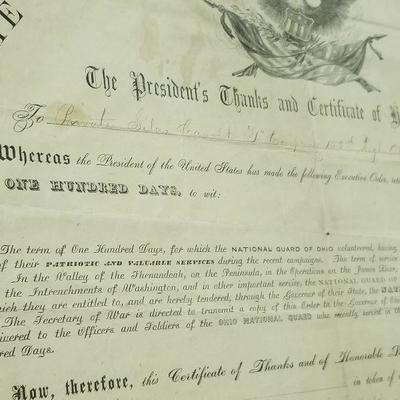 The President's Thanks and Certificate of
To Private Silas
Whereas the President of the United States has made the following Executive Order,
ONE HUNDRED DAYS, to wit:
The term of One Hundred Days, for which the NATIONAL GUARD OF OHIO volunteered, having
of their PATRIOTIC AND VALUABLE SERVICES during the recent campaigns. The term of service
In the Valley of the Shenandoah, on the Peninsula, in the Operations on the James River,
the Intrenchments of Washington, and in other important service, the NATIONAL GUARD OF
which they are entitled to, and are hereby tendered, through the Governor of their State, the
The Secretary of War is directed to transmit a copy of this Order to the Governor of
livered to the Officers and Soldiers of the OHIO NATIONAL GUARD who recently served in the
red Days.
Now, therefore, this Certificate of Thanks and of Honorable
in token of